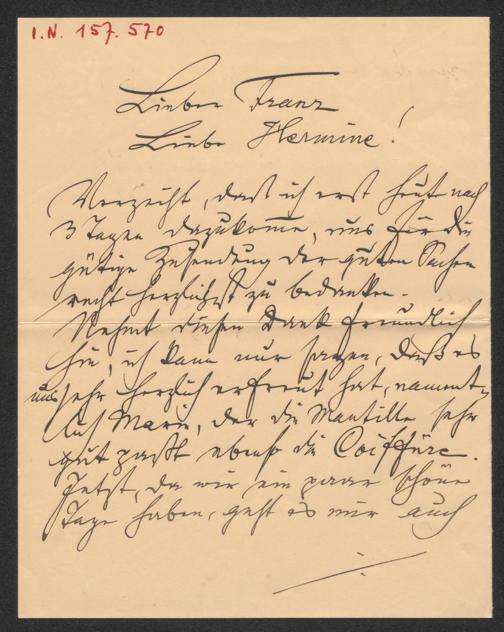 I.N. 157.570
Lieber Franz
Liebe Hermine!
Verzeiht, daß ich erst heute nach
3 Tagen dazukomme, uns für die
gütige Zusendung der guten Sachen
recht herzlichst zu bedanken.
Nehmt diesen Dank freundlich
hin, ich kann nur sagen, daß es
uns sehr herzlich erfreut hat, nament-
lich Marie, der die Mantille sehr
gut paßt ebenso die Coiffüre.
Jetzt, da wir ein paar schöne
Tage haben, geht es mir auch